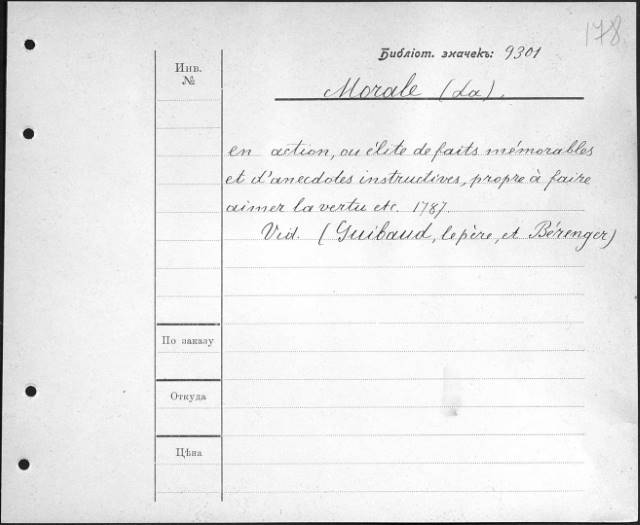 178
Библіот. значекъ: 9301
Инв.
№
Morale (La).
en action, ou élite de faits mémorables
et d'anecdotes instructives, propre à faire
aimer la vertu etc. 1787.
Vid. (Guibaud, le père, et Bérenger)
По заказу
Откуда
Цѣна